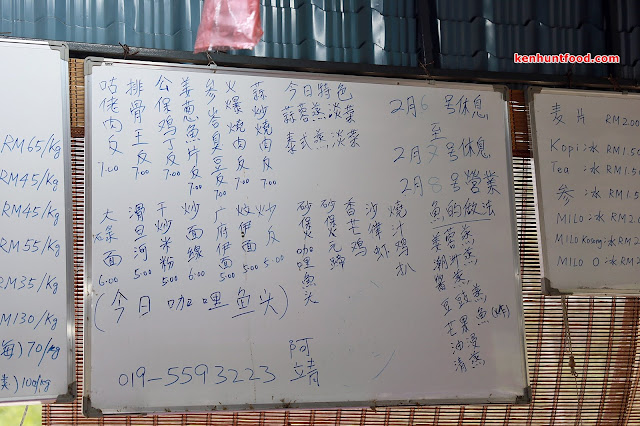 RM65/Kg
RM45/Kg
RM45/Kg
RM55/Kg
RM35/Kg
RM130/Kg
70/Kg
100/Kg
咕佬肉反 7.00
排骨王反 7.00
公保鸡丁反 7.00
姜葱鱼片反 7.00
臭豆反 7.00
火爆烧肉反 7.00
蒜炒烧肉反 7.00
今日特色
蒜蓉蒸淡菜
泰式蒸淡菜
大碌面 6.00
滑旦河 5.00
干炒米粉 5.00
炒面線 6.00
广府伊面 6.00
炆伊面 5.00
炒反 5.00
砂煲咖哩鱼头
砂煲元蹄
香芒鸡
沙律虾
烧汁鸡扒
(今日咖哩鱼头)
019-5593223
阿靖
2月6号休息
至
2月7号休息
2月8号營業
魚的做法
姜蓉蒸
潮州蒸
醬蒸
豆豉蒸
芒果魚
油浸
清蒸
kenhuntfood.com
麦片 RM2.00
Kopi:冰 RM1.50
Tea :冰 RM1.50
参 :冰 RM1.5
MILO:冰 RM2.0
MILO Kosong:冰 RM2
MILO O :冰 RM2